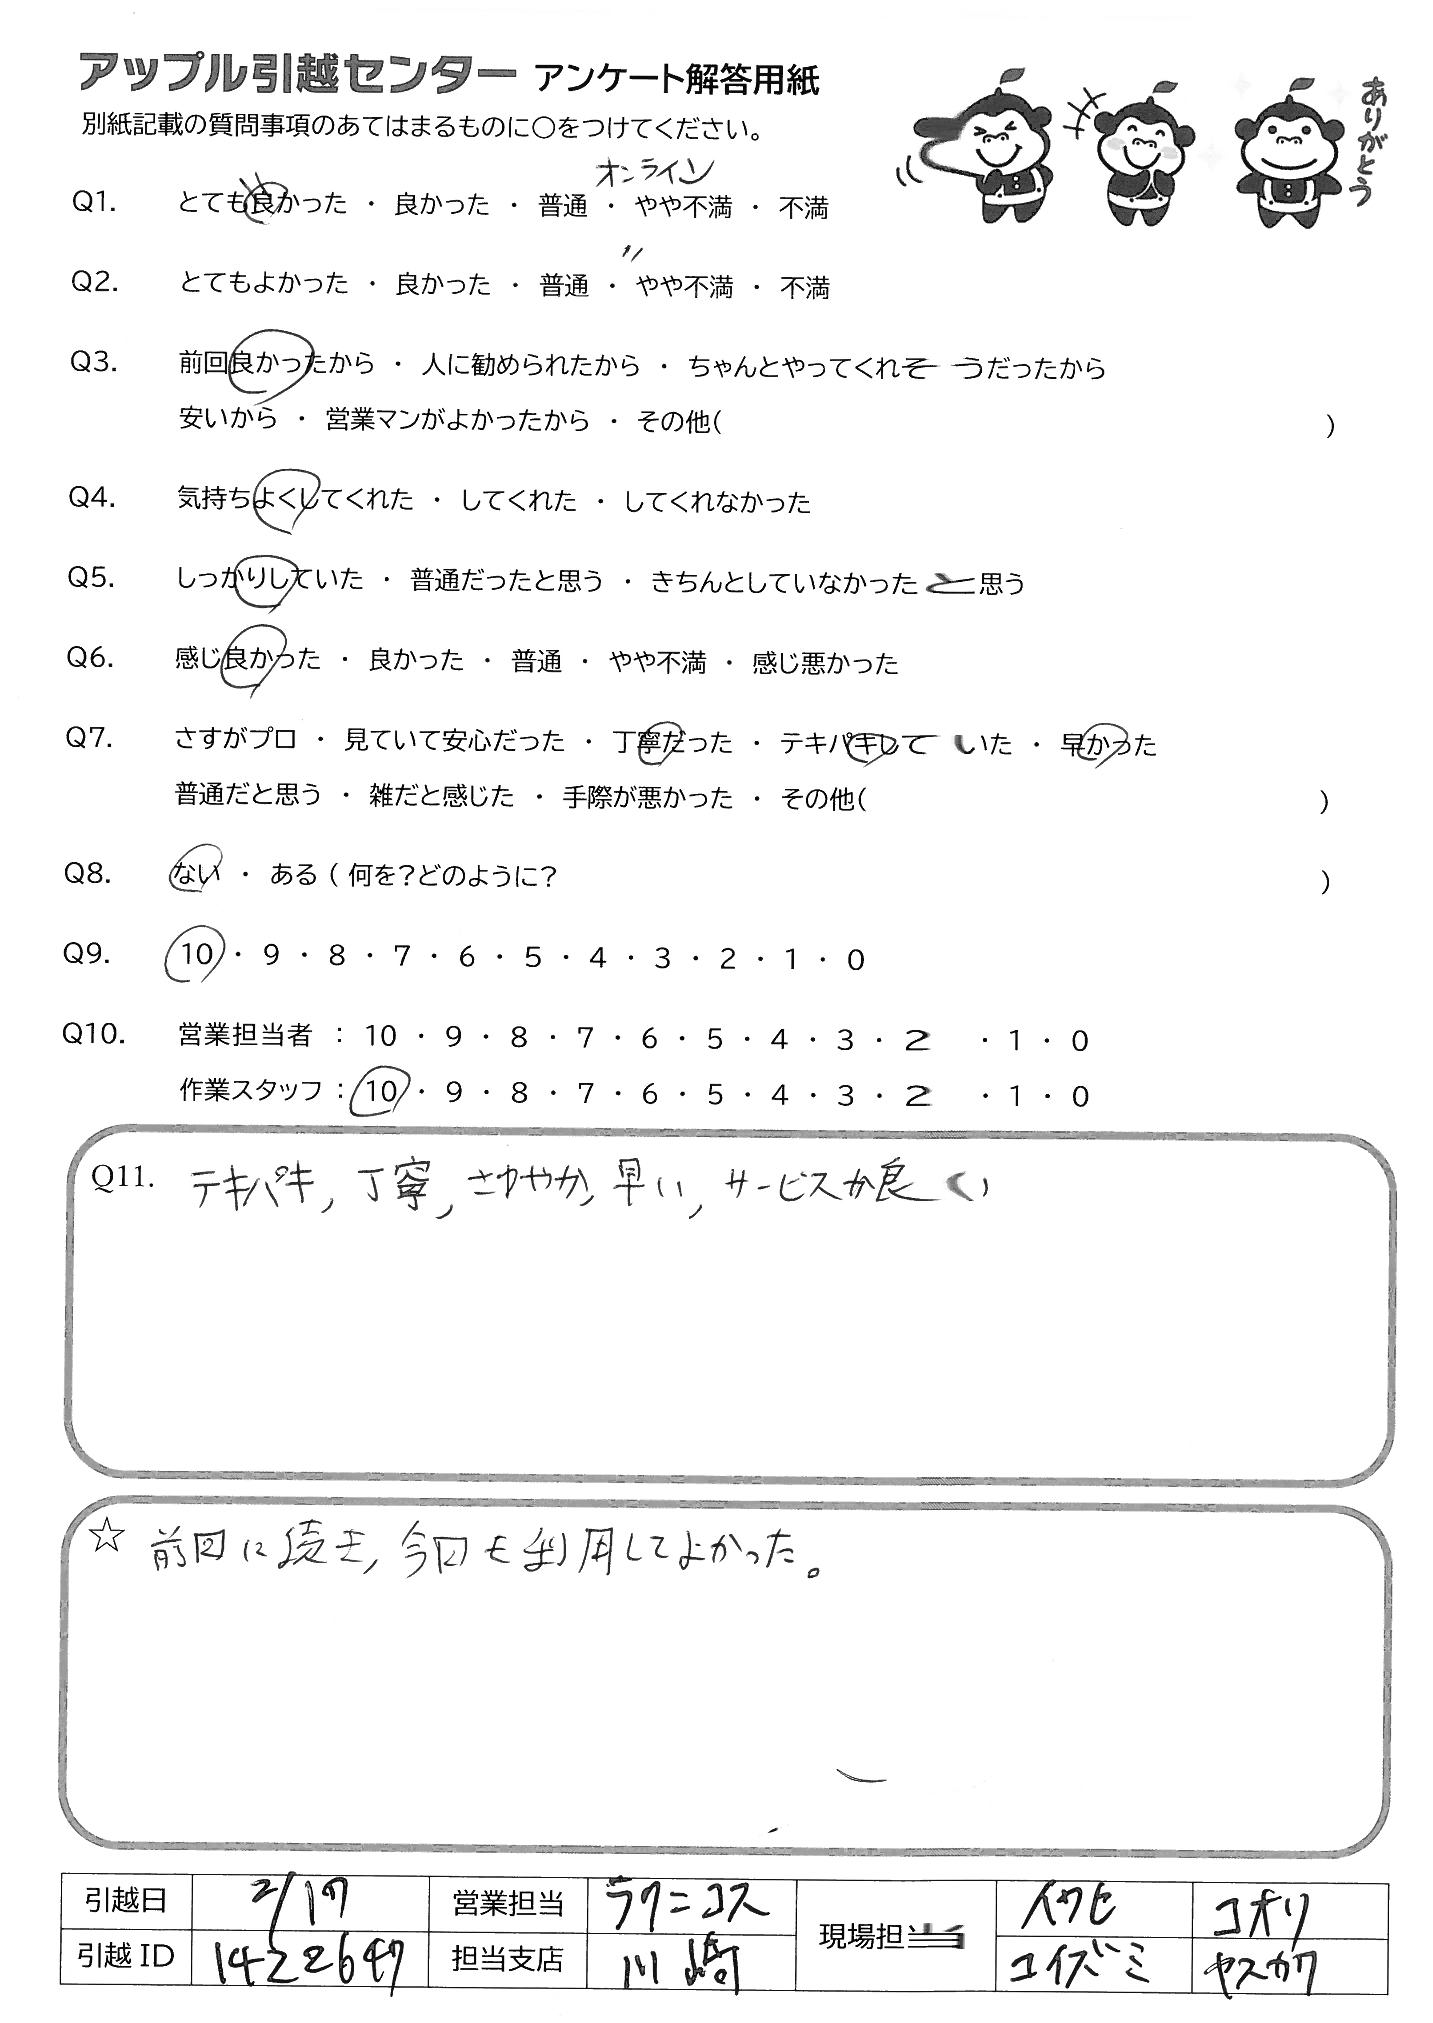 アップル引越センター アンケート解答用紙
ありがとう
別紙記載の質問事項のあてはまるものに○をつけてください。
オンライン
Q1. とても良かった ・ 良かった ・ 普通 ・ やや不満 ・ 不満
〃
Q2. とてもよかった ・ 良かった ・ 普通 ・ やや不満 ・ 不満
Q3. 前回良かったから ・ 人に勧められたから ・ ちゃんとやってくれそうだったから
安いから ・ 営業マンがよかったから ・ その他( )
Q4. 気持ちよくしてくれた ・ してくれた ・ してくれなかった
Q5. しっかりしていた ・ 普通だったと思う ・ きちんとしていなかったと思う
Q6. 感じ良かった ・ 良かった ・ 普通 ・ やや不満 ・ 感じ悪かった
Q7. さすがプロ ・ 見ていて安心だった ・ 丁寧だった ・ テキパキしていた ・ 早かった
普通だと思う ・ 雑だと感じた ・ 手際が悪かった ・ その他( )
Q8. ない ・ ある ( 何を?どのように? )
Q9. 10 ・ 9 ・ 8 ・ 7 ・ 6 ・ 5 ・ 4 ・ 3 ・ 2 ・ 1 ・ 0
Q10. 営業担当者 : 10 ・ 9 ・ 8 ・ 7 ・ 6 ・ 5 ・ 4 ・ 3 ・ 2 ・ 1 ・ 0
作業スタッフ : 10 ・ 9 ・ 8 ・ 7 ・ 6 ・ 5 ・ 4 ・ 3 ・ 2 ・ 1 ・ 0
Q11. テキパキ, 丁寧, さわやか, 早い, サービスが良い
☆ 前回に続き, 今回も利用してよかった。
引越日 2/17 営業担当 ラクニコス 現場担当 イワセ コオリ
引越ID 1422647 担当支店 川崎 コイズミ ヤスカワ